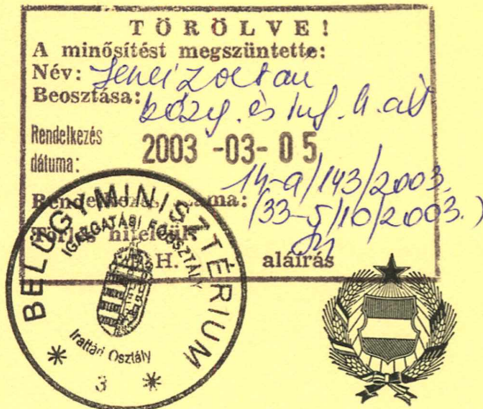 TÖRÖLVE!
A minősítést megszüntette:
Név: Jenei Zoltán
Beosztása: közig. és
Rendelkezés
dátuma: 2003 -03- 05
14-a/143/2003.
Rendelkezés száma:
(33-5/10/2003.)
Törlés hiteléül:
H. aláírás
BELÜGYMINISZTÉRIUM
IGAZGATÁSI FŐOSZTÁLY
Irattári Osztály
* 3 *